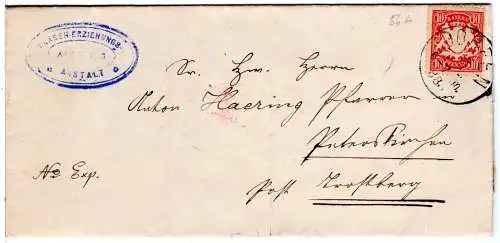 56A
KNABEN-ERZIEHUNGS-
ANSTALT
BAYERN
10 10
Sr. Hw. Herrn
Anton Haering Pfarrer
Peterskirchen
Post Trostberg
No Exp.